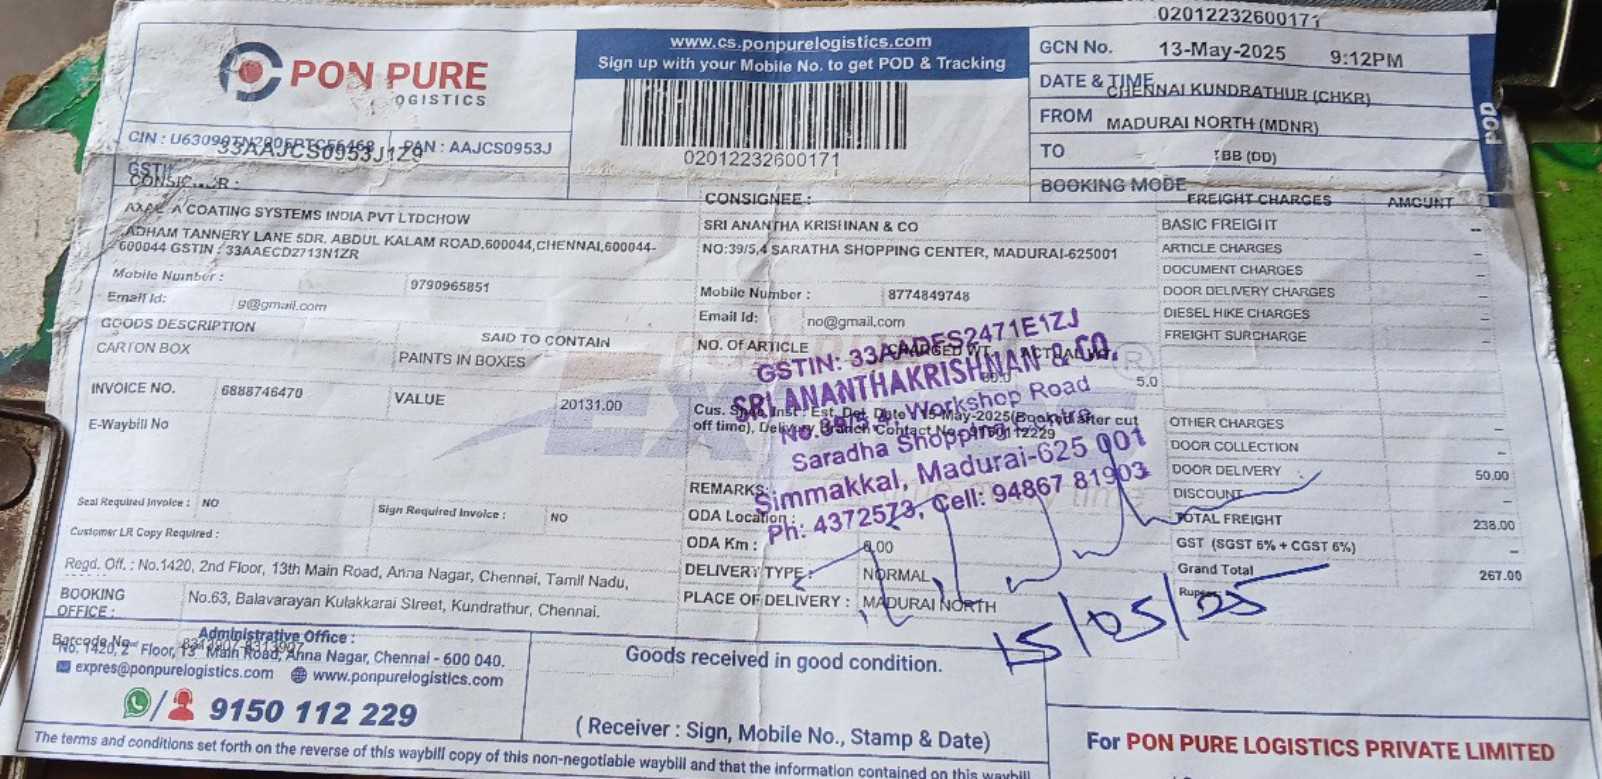 02012232600171
PON PURE
LOGISTICS
www.cs.ponpurelogistics.com
Sign up with your Mobile No. to get POD & Tracking
02012232600171
GCN No.
13-May-2025 9:12PM
DATE & TIME
CHENNAI KUNDRATHUR (CHKR)
FROM
MADURAI NORTH (MDNR)
TO
TBB (DD)
BOOKING MODE
POD
CIN : PAN : AAJCS0953J
33AAJCS0953J1Z9
CONSIGNOR :
A COATING SYSTEMS INDIA PVT LTDCHOW
ADHAM TANNERY LANE 5DR, ABDUL KALAM ROAD,600044,CHENNAI,600044-
600044 GSTIN : 33AAECD2713N1ZR
Mobile Number : 9790965851
Email Id: g@gmail.com
GOODS DESCRIPTION SAID TO CONTAIN
CARTON BOX PAINTS IN BOXES
INVOICE NO. 6888746470 VALUE 20131.00
E-Waybill No
Seal Required Invoice : NO Sign Required Invoice : NO
Customer LR Copy Required :
Regd. Off. : No.1420, 2nd Floor, 13th Main Road, Anna Nagar, Chennai, Tamil Nadu,
BOOKING OFFICE : No.63, Balavarayan Kulakkarai Street, Kundrathur, Chennai.
CONSIGNEE :
SRI ANANTHA KRISHNAN & CO
NO:39/5,4 SARATHA SHOPPING CENTER, MADURAI-625001
Mobile Number : 8774849748
Email Id: no@gmail.com
NO. Of ARTICLE CHARGED WT. ACTUAL
5.0
Cus. Inst : Est. Del. Date : 15-May-2025(Booked after cut
off time), Delivery Branch Contact No : 9150112229
REMARKS:
ODA Location :
ODA Km : 0.00
DELIVERY TYPE : NORMAL
PLACE OF DELIVERY : MADURAI NORTH
GSTIN: 33AADES2471E1ZJ
SRI ANANTHAKRISHNAN & CO.
Workshop Road
Saradha Shopping
Simmakkal, Madurai-625 001
Ph: 4372573, Cell: 94867 81903
15/05/25
FREIGHT CHARGES AMOUNT
BASIC FREIGHT --
ARTICLE CHARGES -
DOCUMENT CHARGES -
DOOR DELIVERY CHARGES -
DIESEL HIKE CHARGES -
FREIGHT SURCHARGE -
OTHER CHARGES -
DOOR COLLECTION -
DOOR DELIVERY 50.00
DISCOUNT -
TOTAL FREIGHT 238.00
GST (SGST 6% + CGST 6%) -
Grand Total 267.00
Barcode No
Administrative Office :
No. 1420, 2nd Floor, 13th Main Road, Anna Nagar, Chennai - 600 040.
expres@ponpurelogistics.com www.ponpurelogistics.com
9150 112 229
Goods received in good condition.
( Receiver : Sign, Mobile No., Stamp & Date)
For PON PURE LOGISTICS PRIVATE LIMITED
The terms and conditions set forth on the reverse of this waybill copy of this non-negotiable waybill and that the information contained on this waybill